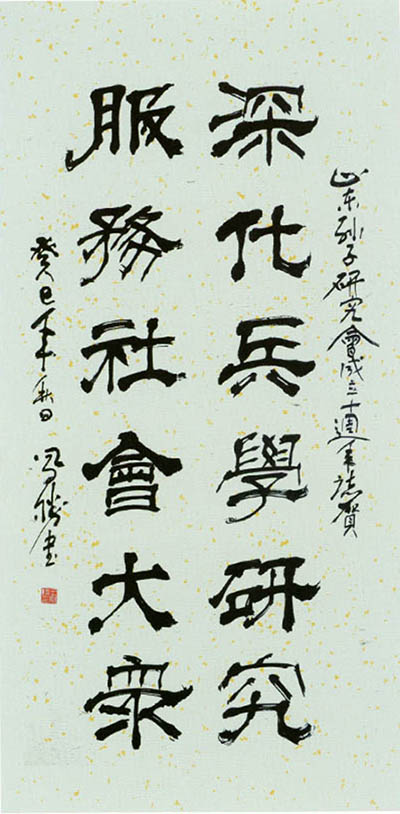 山东孙子研究會成立十週年誌賀
深化兵學研究
服務社會大衆
癸巳年秋日